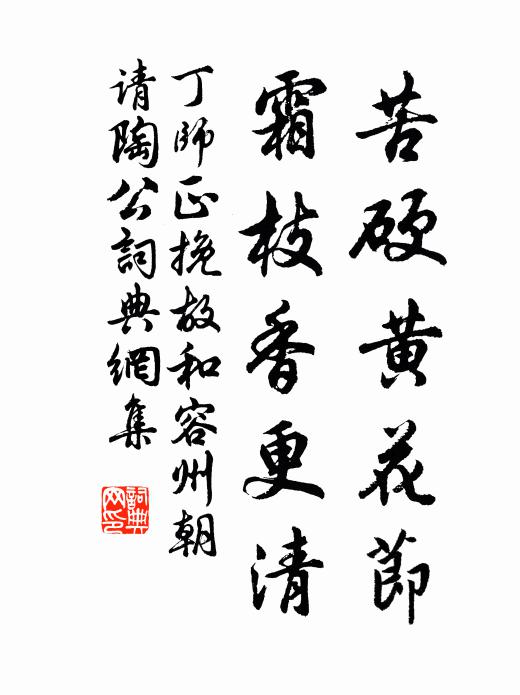 苦硬黄花節
霜枝香更清
丁師正挽故和容州朝
请陶公詞典網集
詞典网印